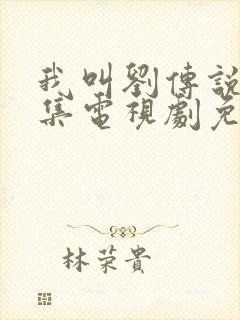 我叫劉傳說
集電視劇免
林荣貴